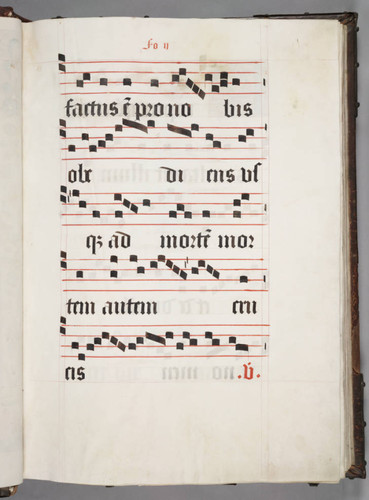 fo ij
factus ē pro no bis
obe di ens vs
qꝫ ad mortē mor
tem autem cru
cis .v̇.